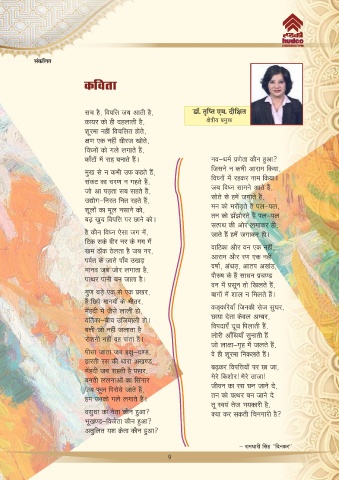 हडको
hudco
संकलित
कविता
डॉ. तृप्ति एम. दीक्षित
क्षेत्रीय प्रमुख
सच है, विपत्ति जब आती है,
कायर को ही दहलाती है,
शूरमा नहीं विचलित होते,
क्षण एक नहीं धीरज खोते,
विघ्नों को गले लगाते हैं,
काँटों में राह बनाते हैं।
मुख से न कभी उफ कहते हैं,
संकट का चरण न गहते हैं,
जो आ पड़ता सब सहते हैं,
उद्योग-निरत नित रहते हैं,
शूलों का मूल नसाने को,
बढ़ खुद विपत्ति पर छाने को।
है कौन विघ्न ऐसा जग में,
टिक सके वीर नर के मग में
खम ठोंक ठेलता है जब नर,
पर्वत के जाते पाँव उखड़
मानव जब जोर लगाता है,
पत्थर पानी बन जाता है।
गुण बड़े एक से एक प्रखर,
हैं छिपे मानवों के भीतर,
मेंहदी में जैसे लाली हो,
वर्तिका-बीच उजियाली हो।
बत्ती जो नहीं जलाता है
रोशनी नहीं वह पाता है।
पीसा जाता जब इक्षु-दण्ड,
झरती रस की धारा अखण्ड,
मेंहदी जब सहती है प्रहार,
बनती ललनाओं का सिंगार
जब फूल पिरोये जाते हैं,
हम उनको गले लगाते हैं।
वसुधा का नेता कौन हुआ?
भूखण्ड-विजेता कौन हुआ?
अतुलित यश क्रेता कौन हुआ?
नव-धर्म प्रणेता कौन हुआ?
जिसने न कभी आराम किया,
विघ्नों में रहकर नाम किया।
जब विघ्न सामने आते हैं,
सोते से हमें जगाते हैं,
मन को मरोड़ते हैं पल-पल,
तन को झँझोरते हैं पल-पल
सत्पथ की ओर लगाकर ही,
जाते हैं हमें जगाकर ही।
वाटिका और वन एक नहीं,
आराम और रण एक नहीं
वर्षा, अंधड़, आतप अखंड,
पौरुष के हैं साधन प्रचण्ड
वन में प्रसून तो खिलते हैं,
बागों में शाल न मिलते हैं।
कङ्करियाँ जिनकी सेज सुघर,
छाया देता केवल अम्बर,
विपदाएँ दूध पिलाती हैं,
लोरी आँधियाँ सुनाती हैं
जो लाक्षा-गृह में जलते हैं,
वे ही शूरमा निकलते हैं।
बढ़कर विपत्तियों पर छा जा,
मेरे किशोर! मेरे ताजा!
जीवन का रस छन जाने दे,
तन को पत्थर बन जाने दे
तू स्वयं तेज भयकारी है,
क्या कर सकती चिनगारी है?
- रामधारी सिंह "दिनकर"
9